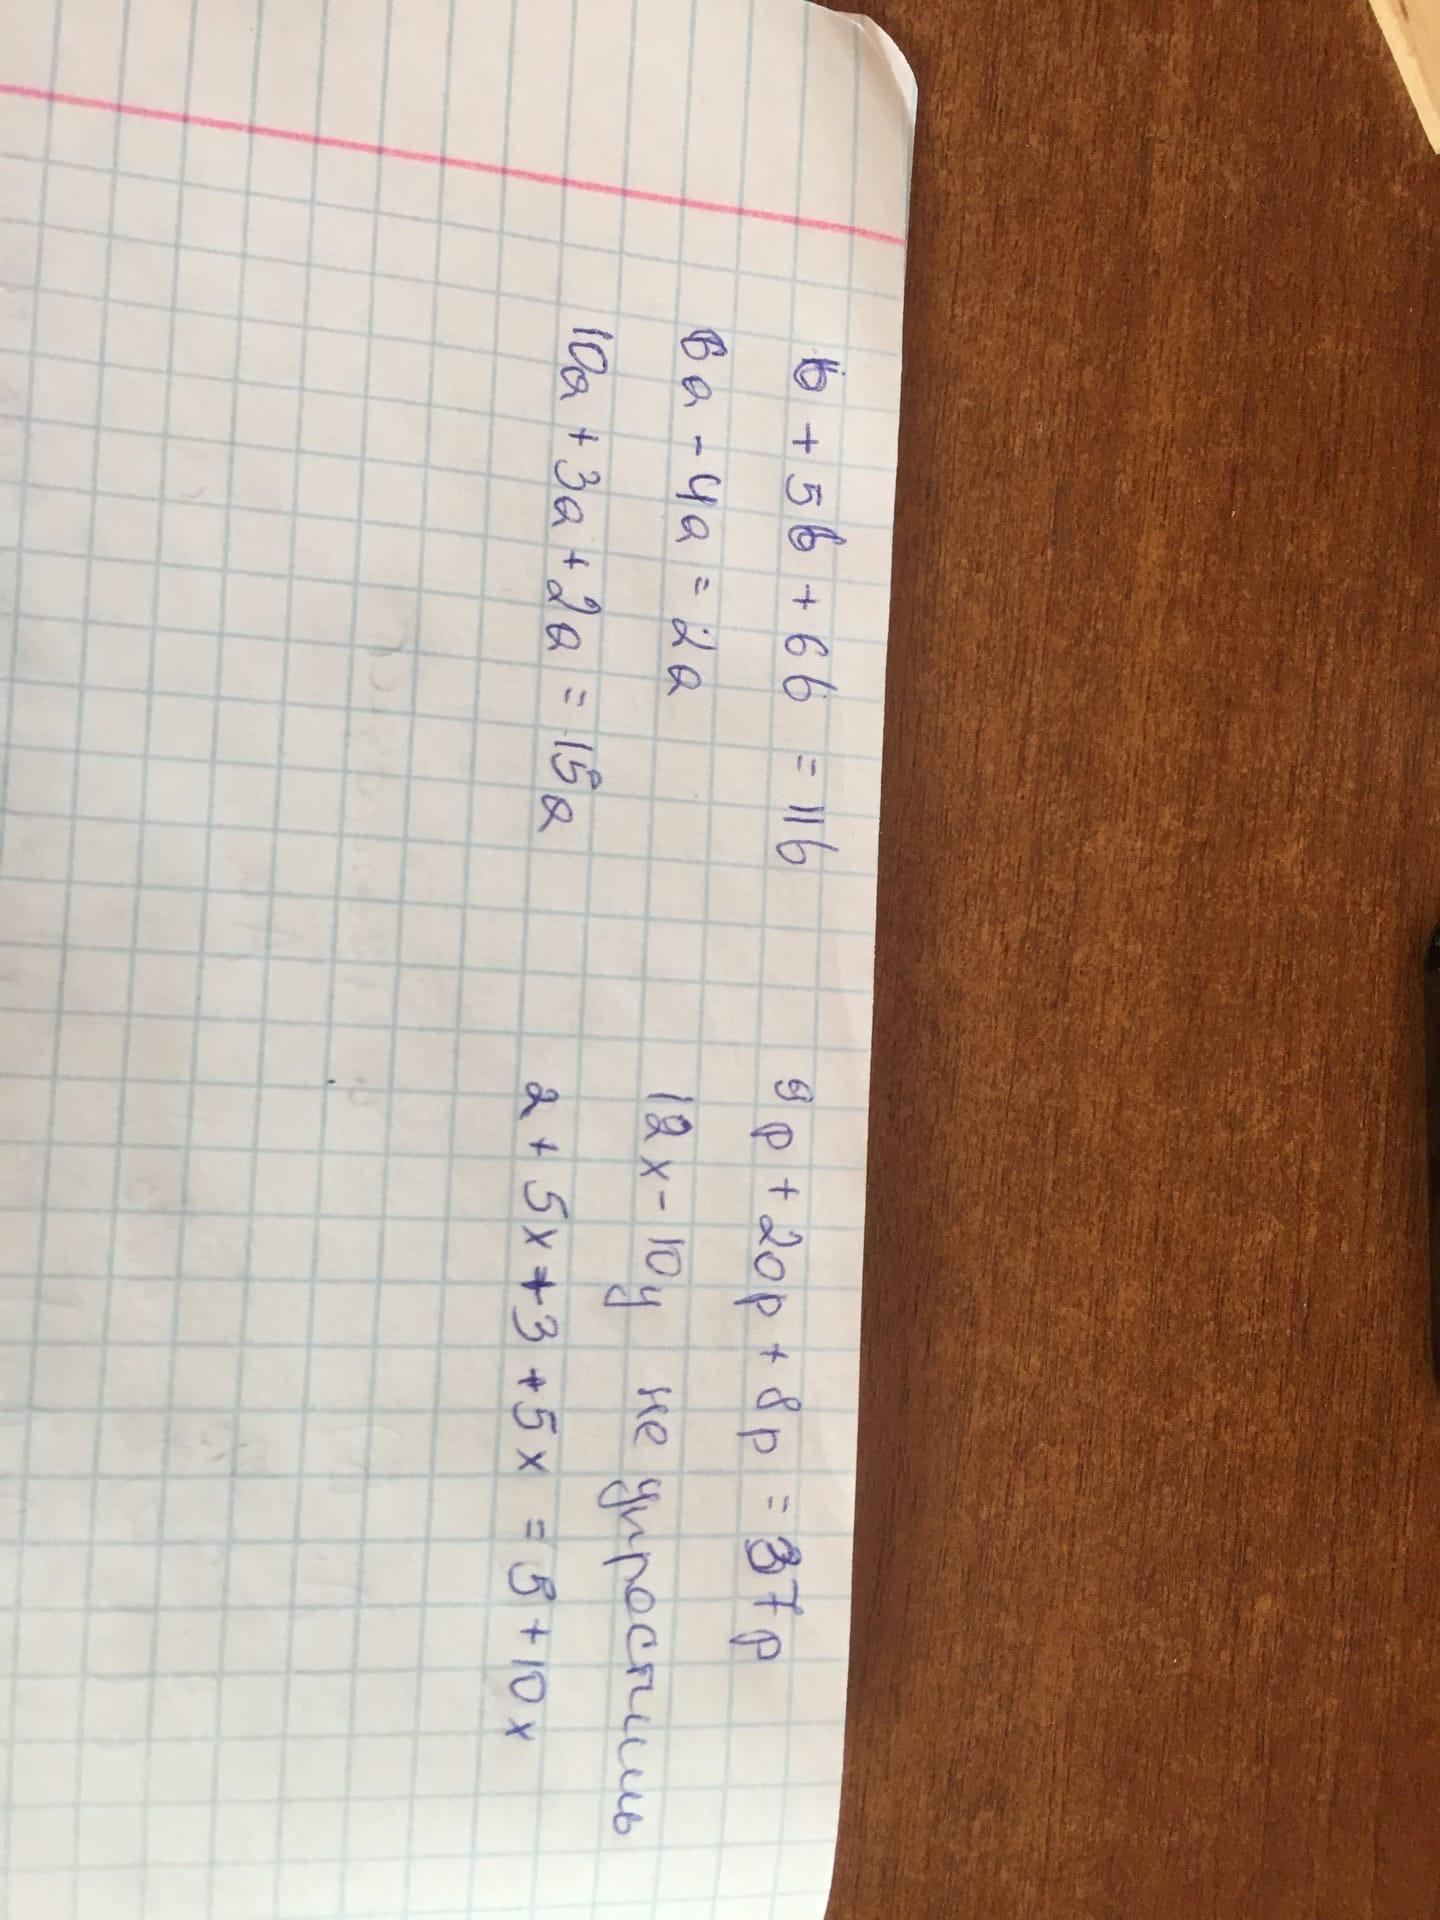 b + 5b + 6b = 11b
6a - 4a = 2a
10a + 3a + 2a = 15a
9p + 20p + 8p = 37p
12x - 10y не упростишь
2 + 5x + 3 + 5x = 5 + 10x